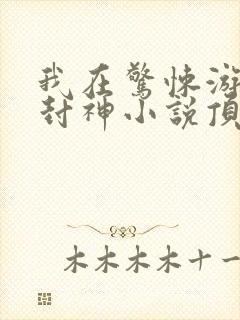 我在驚悚游
封神小説頂
木木木木十一